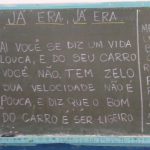 JÁ ERA, JÁ ERA..
AI VOCÊ SE DIZ UM VIDA
LOUCA, E DO SEU CARRO
VOCÊ NÃO TEM ZELO
SUA VELOCIDADE NÃO É
POUCA, E DIZ QUE O BOM
DO CARRO É SER LIGEIRO